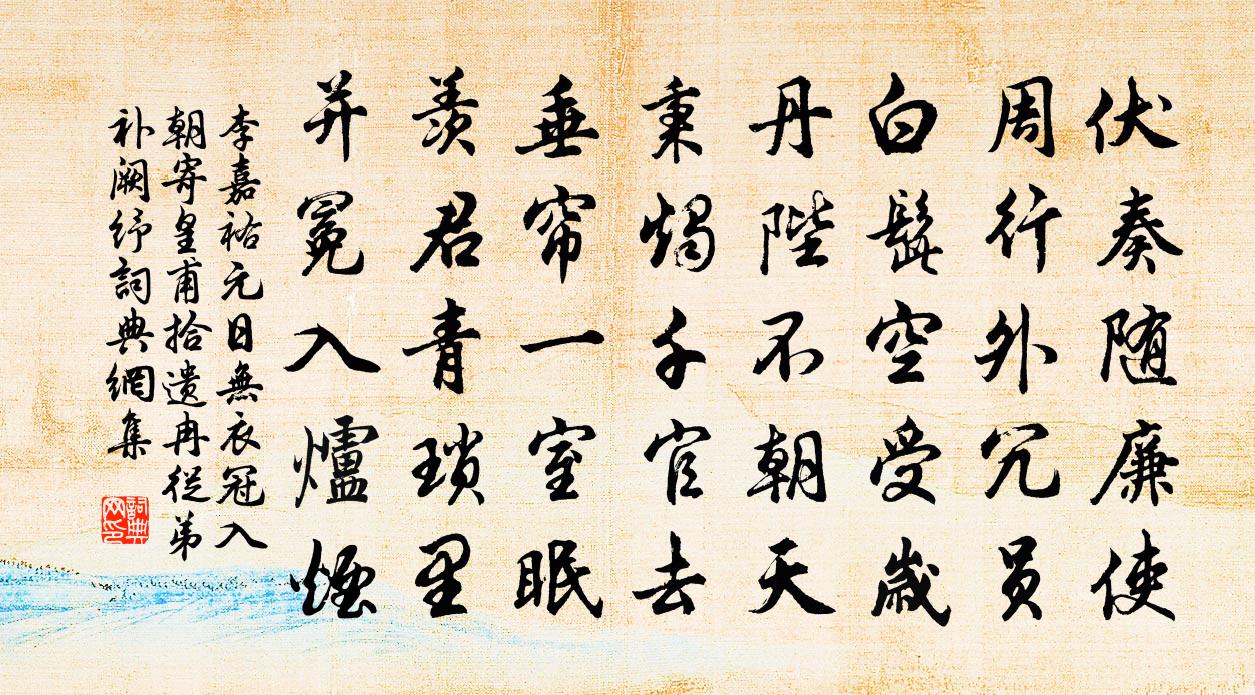 伏奏随廉使
周行外冗員
白髭空受歲
丹陛不朝天
秉燭千官去
垂帘一室眠
羨君青瑣里
并冕入爐煙
李嘉祐元日無衣冠入
朝寄皇甫拾遗冉從弟
补阙纾詞典網集
詞典
网印